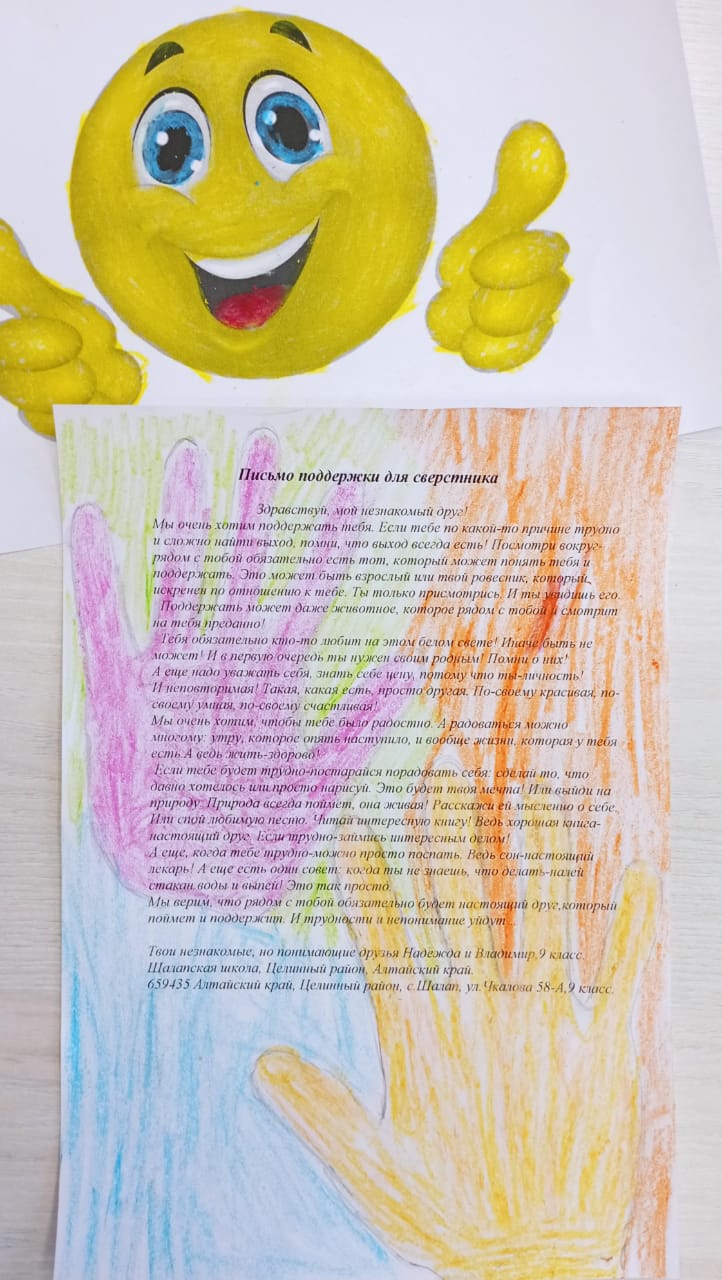 Письмо поддержки для сверстника
Здравствуй, мой незнакомый друг!
Мы очень хотим поддержать тебя. Если тебе по какой-то причине трудно
и сложно найти выход, помни, что выход всегда есть! Посмотри вокруг-
рядом с тобой обязательно есть тот, который может понять тебя и
поддержать. Это может быть взрослый или твой ровесник, который
искренен по отношению к тебе. Ты только присмотрись. И ты увидишь его.
Поддержать может даже животное, которое рядом с тобой и смотрит
на тебя преданно!
Тебя обязательно кто-то любит на этом белом свете! Иначе быть не
может! И в первую очередь ты нужен своим родным! Помни о них!
А еще надо уважать себя, знать себе цену, потому что ты-личность!
И неповторимая! Такая, какая есть, просто другая. По-своему красивая, по-
своему умная, по-своему счастливая!
Мы очень хотим, чтобы тебе было радостно. А радоваться можно
многому: утру, которое опять наступило, и вообще жизни, которая у тебя
есть.А ведь жить-здорово!
Если тебе будет трудно-постарайся порадовать себя: сделай то, что
давно хотелось или просто нарисуй. Это будет твоя мечта! Или выйди на
природу. Природа всегда поймет, она живая! Расскажи ей мысленно о себе.
Или спой любимую песню. Читай интересную книгу! Ведь хорошая книга-
настоящий друг. Если трудно-займись интересным делом!
А еще, когда тебе трудно-можно просто поспать. Ведь сон-настоящий
лекарь! А еще есть один совет: когда ты не знаешь, что делать-налей
стакан воды и выпей! Это так просто.
Мы верим, что рядом с тобой обязательно будет настоящий друг,который
поймет и поддержит. И трудности и непонимание уйдут...
Твои незнакомые, но понимающие друзья Надежда и Владимир,9 класс.
Шалапская школа, Целинный район, Алтайский край.
659435 Алтайский край, Целинный район, с.Шалап, ул.Чкалова 58-А,9 класс.